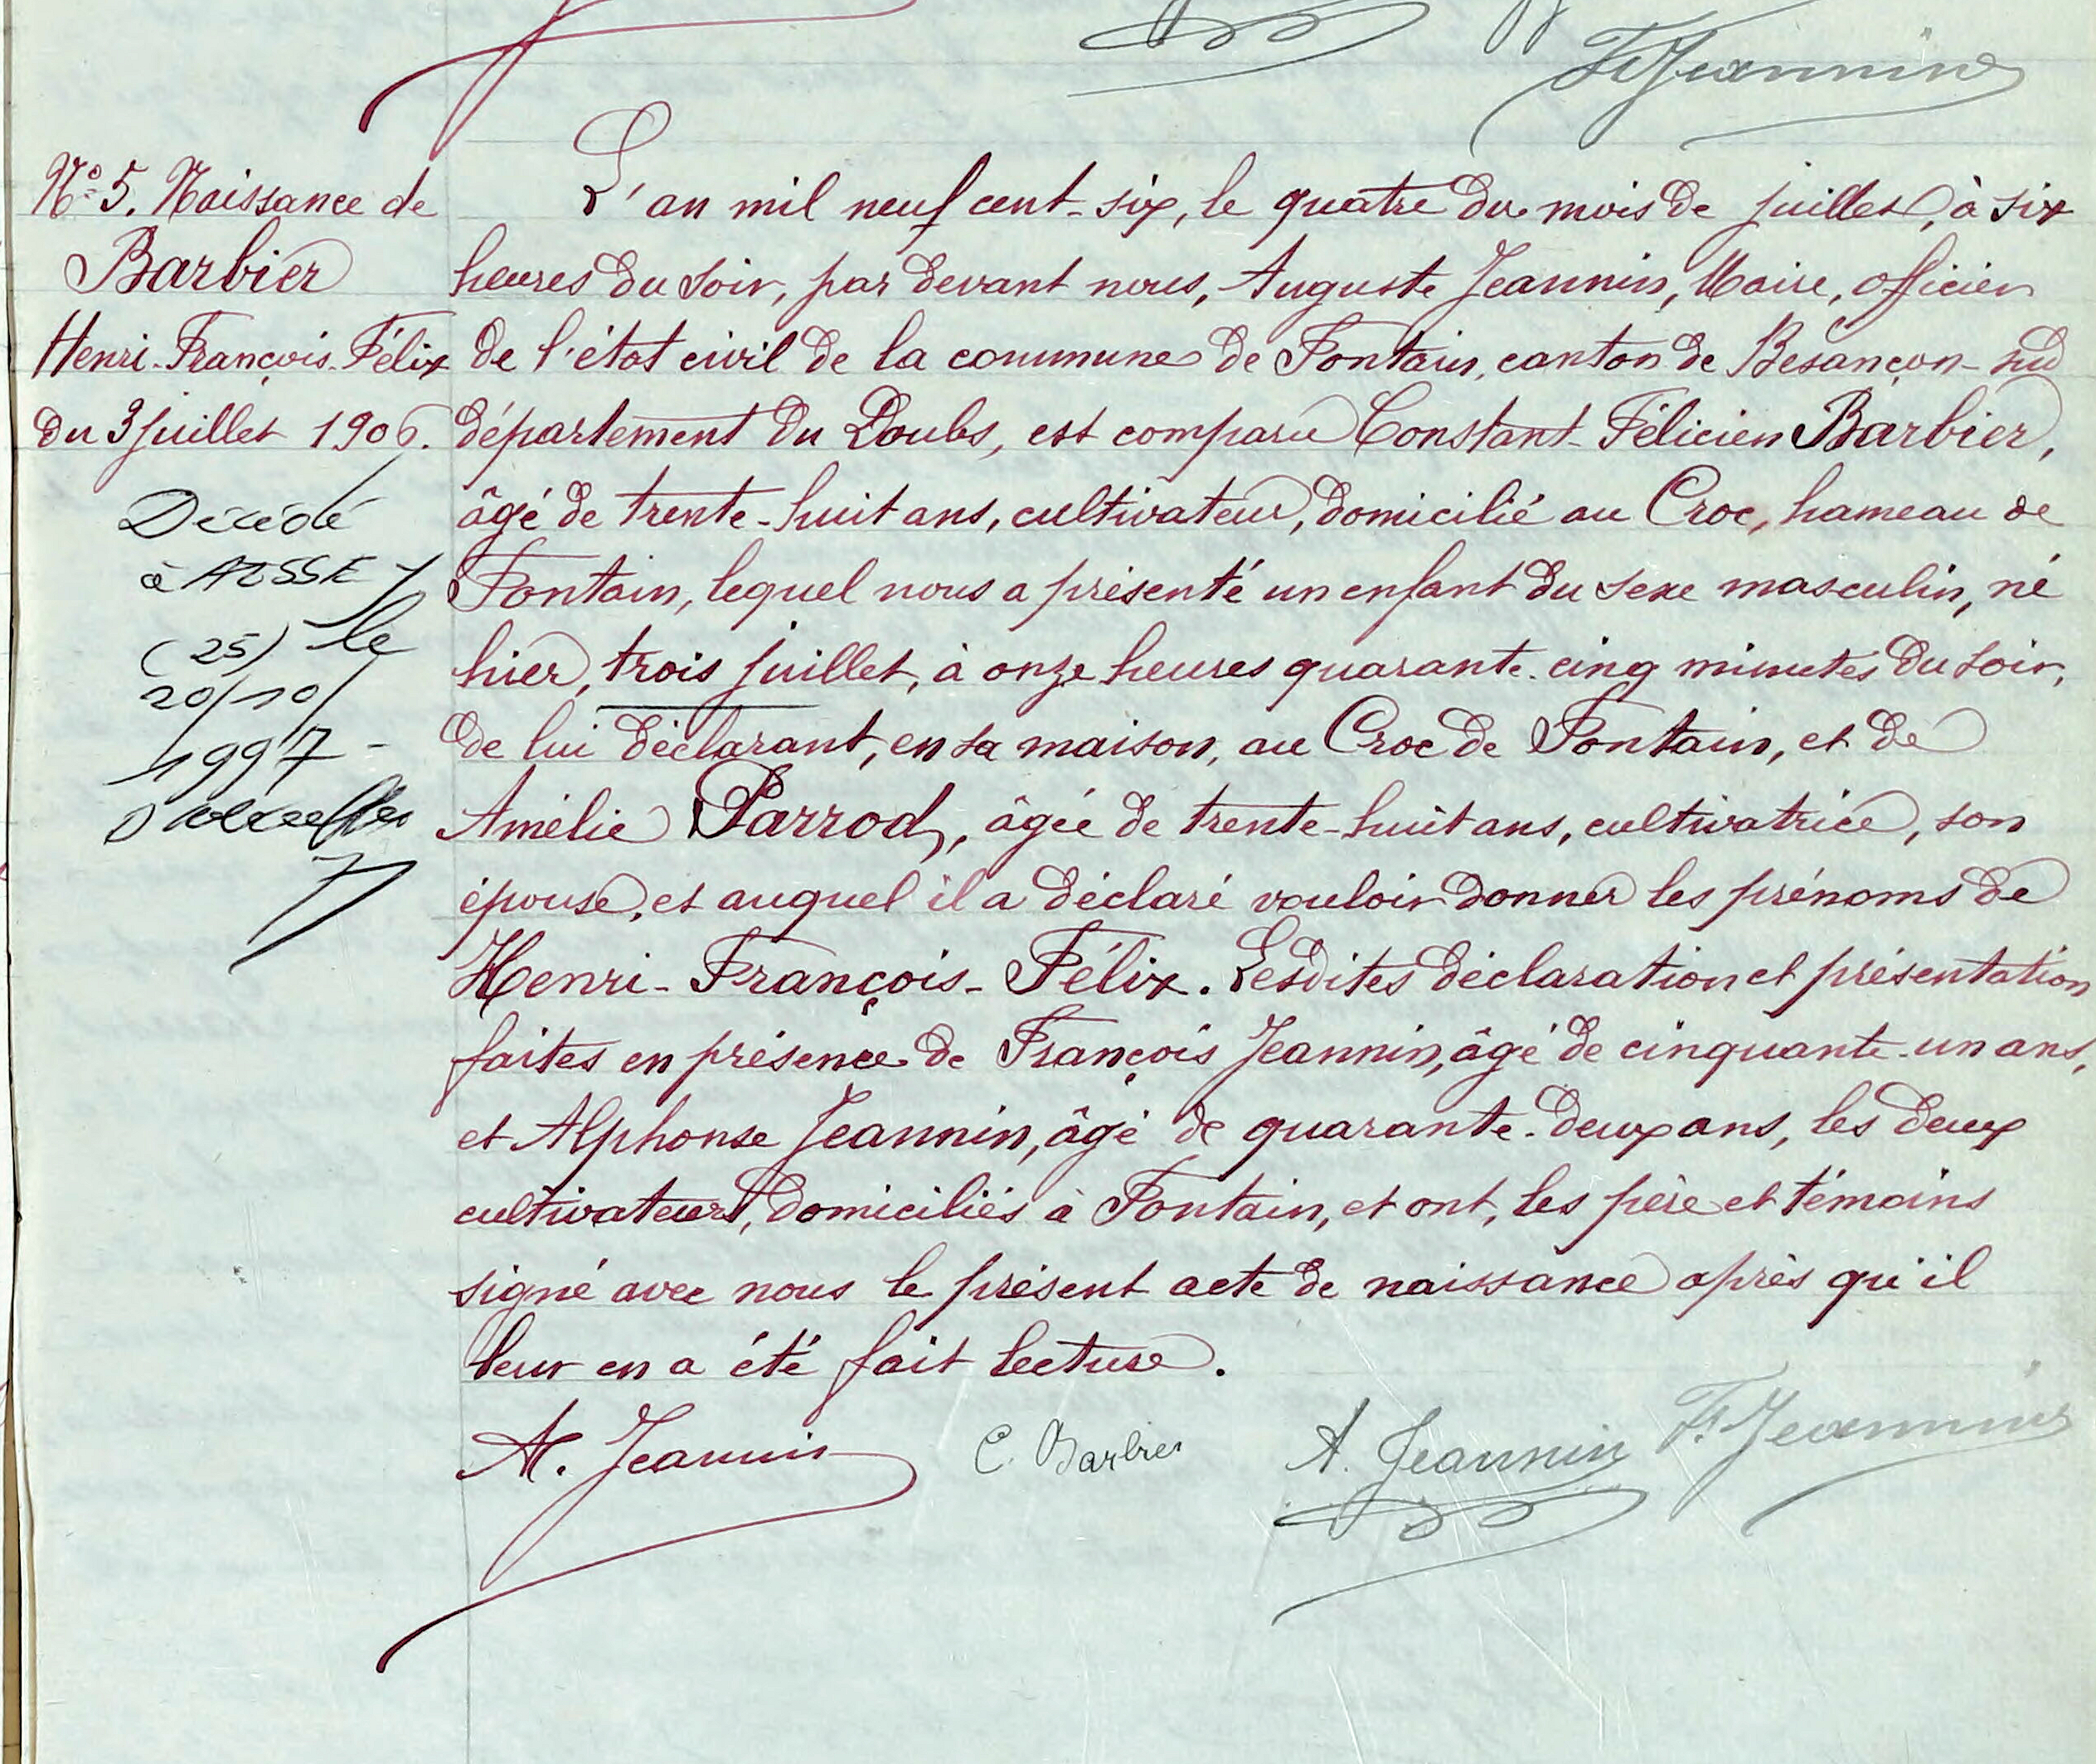 F. Jeannin
N° 5. Naissance de
Barbier
Henri-François-Félix
du 3 juillet 1906.
Décédé
à AÏSSEY
(25) le
20/10/
1997 -
L'an mil neuf cent-six, le quatre du mois de juillet, à six
heures du soir, par devant nous, Auguste Jeannin, Maire, officier
de l'état civil de la commune de Fontain, canton de Besançon-sud
département du Doubs, est comparu Constant-Félicien Barbier,
âgé de trente-huit ans, cultivateur, domicilié au Croc, hameau de
Fontain, lequel nous a présenté un enfant du sexe masculin, né
hier, trois juillet, à onze heures quarante-cinq minutes du soir,
de lui déclarant, en sa maison, au Croc de Fontain, et de
Amélie Parrod, âgée de trente-huit ans, cultivatrice, son
épouse, et auquel il a déclaré vouloir donner les prénoms de
Henri-François-Félix. Lesdites déclaration et présentation
faites en présence de François Jeannin, âgé de cinquante-un ans,
et Alphonse Jeannin, âgé de quarante-deux ans, les deux
cultivateurs, domiciliés à Fontain, et ont, les père et témoins
signé avec nous le présent acte de naissance après qu'il
leur en a été fait lecture.
A. Jeannin C. Barbier A. Jeannin F. Jeannin